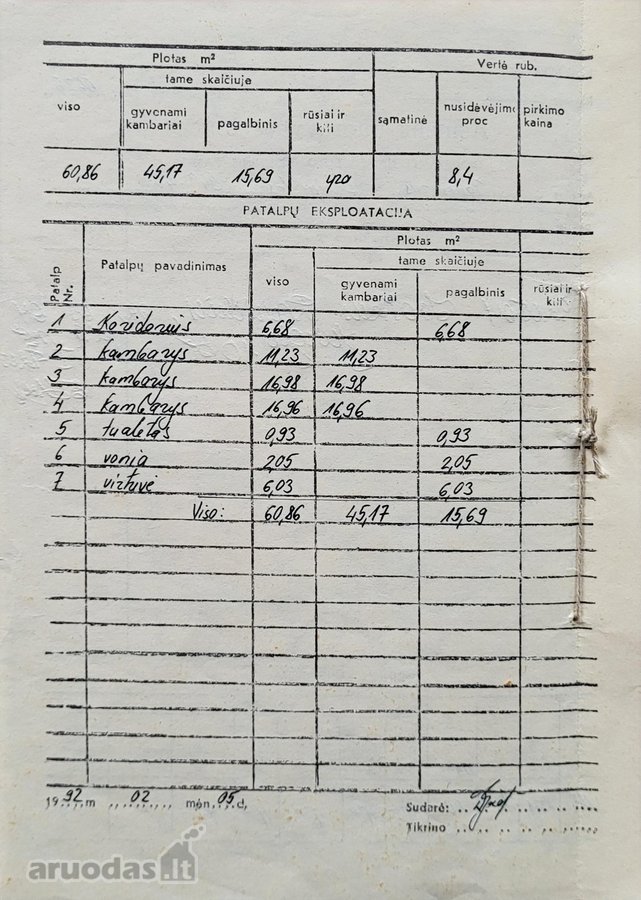 Plotas m² Vertė rub.
tame skaičiuje
viso gyvenami kambariai pagalbinis rūsiai ir kiti sąmatinė nusidėvėjimo proc pirkimo kaina
60,86 45,17 15,69 yra 8,4
PATALPŲ EKSPLOATACIJA
Patalp Nr. Patalpų pavadinimas Plotas m²
viso tame skaičiuje
gyvenami kambariai pagalbinis rūsiai ir kiti
1 Koridorius 6,68 6,68
2 kambarys 11,23 11,23
3 kambarys 16,98 16,98
4 kambarys 16,96 16,96
5 tualetas 0,93 0,93
6 vonia 2,05 2,05
7 virtuvė 6,03 6,03
Viso: 60,86 45,17 15,69
1992 m 02 mėn. 05 d,
Sudarė:
Tikrino
aruodas.lt